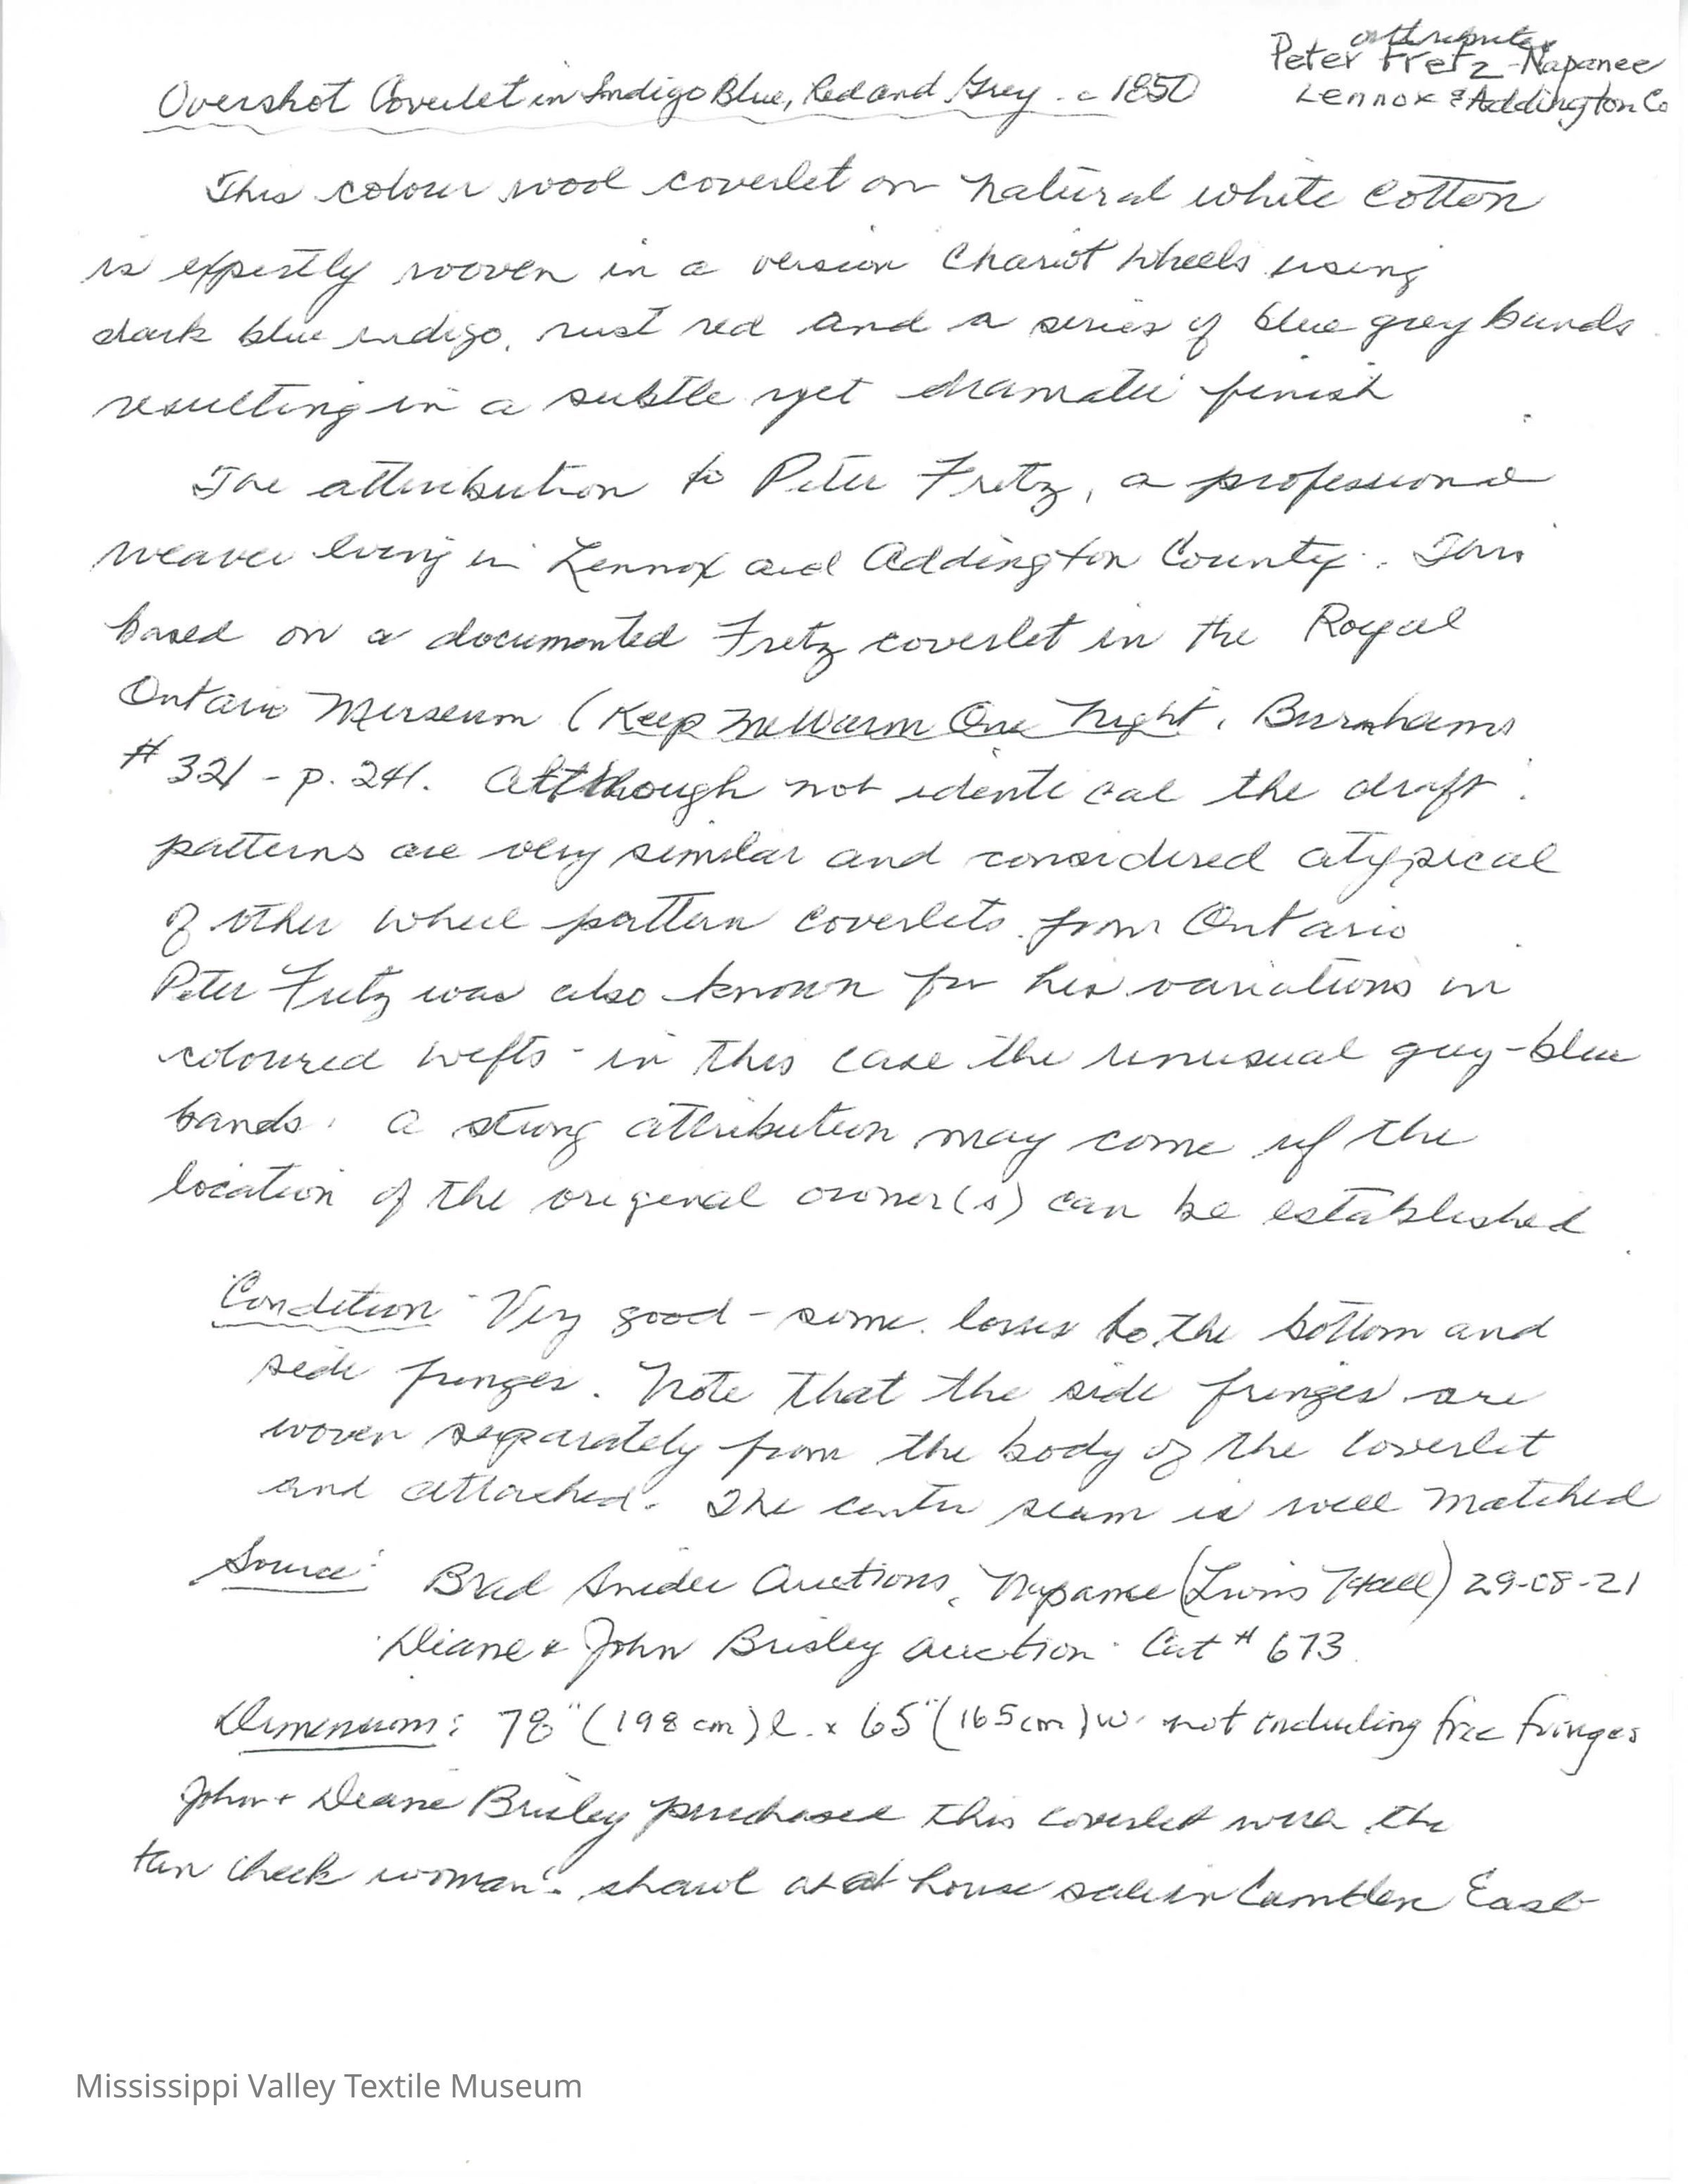 attributed
Peter Fretz - Napanee
Lennox & Addington Co
Overshot Coverlet in Indigo Blue, Red and Grey - c 1850
This colour wool coverlet on natural white cotton
is expertly woven in a version Chariot Wheels using
dark blue indigo, rust red and a series of blue grey bands
resulting in a subtle yet dramatic finish
The attribution to Peter Fretz, a professional
weaver living in Lennox and Addington County. This
based on a documented Fretz coverlet in the Royal
Ontario Museum (Keep Me Warm One Night, Burnhams
# 321 - p. 241. Although not identical the draft
patterns are very similar and considered atypical
of other wheel pattern coverlets from Ontario
Peter Fretz was also known for his variations in
coloured wefts - in this case the unusual grey-blue
bands. A strong attribution may come if the
location of the original owner(s) can be established
Condition - Very good - some losses to the bottom and
side fringes. Note that the side fringes are
woven separately from the body of the coverlet
and attached. The center seam is well matched
Source: Brad Snider Auctions, Napanee (Lions Hall) 29-08-21
Diane & John Brisley auction. Cat # 673
Dimensions: 78" (198 cm) l. x 65" (165 cm) w. not including free fringes
John + Diane Brisley purchased this coverlet with the
tan check woman's shawl at a house sale in Camden East
Mississippi Valley Textile Museum